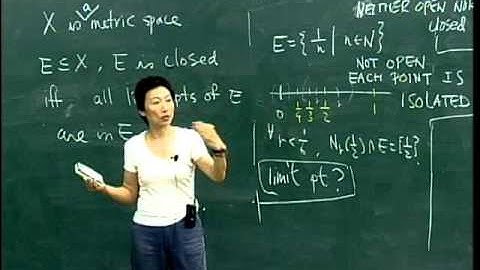 X is a metric space
E ⊆ X, E is closed
iff all pts of E
are in E
NEITHER OPEN NOR
closed
E = {1/n | n ∈ N}
NOT OPEN
EACH POINT IS
ISOLATED
0 1/4 1/3 1/2 1
N_r(1/2) ∩ E = {1/2}
limit pt?